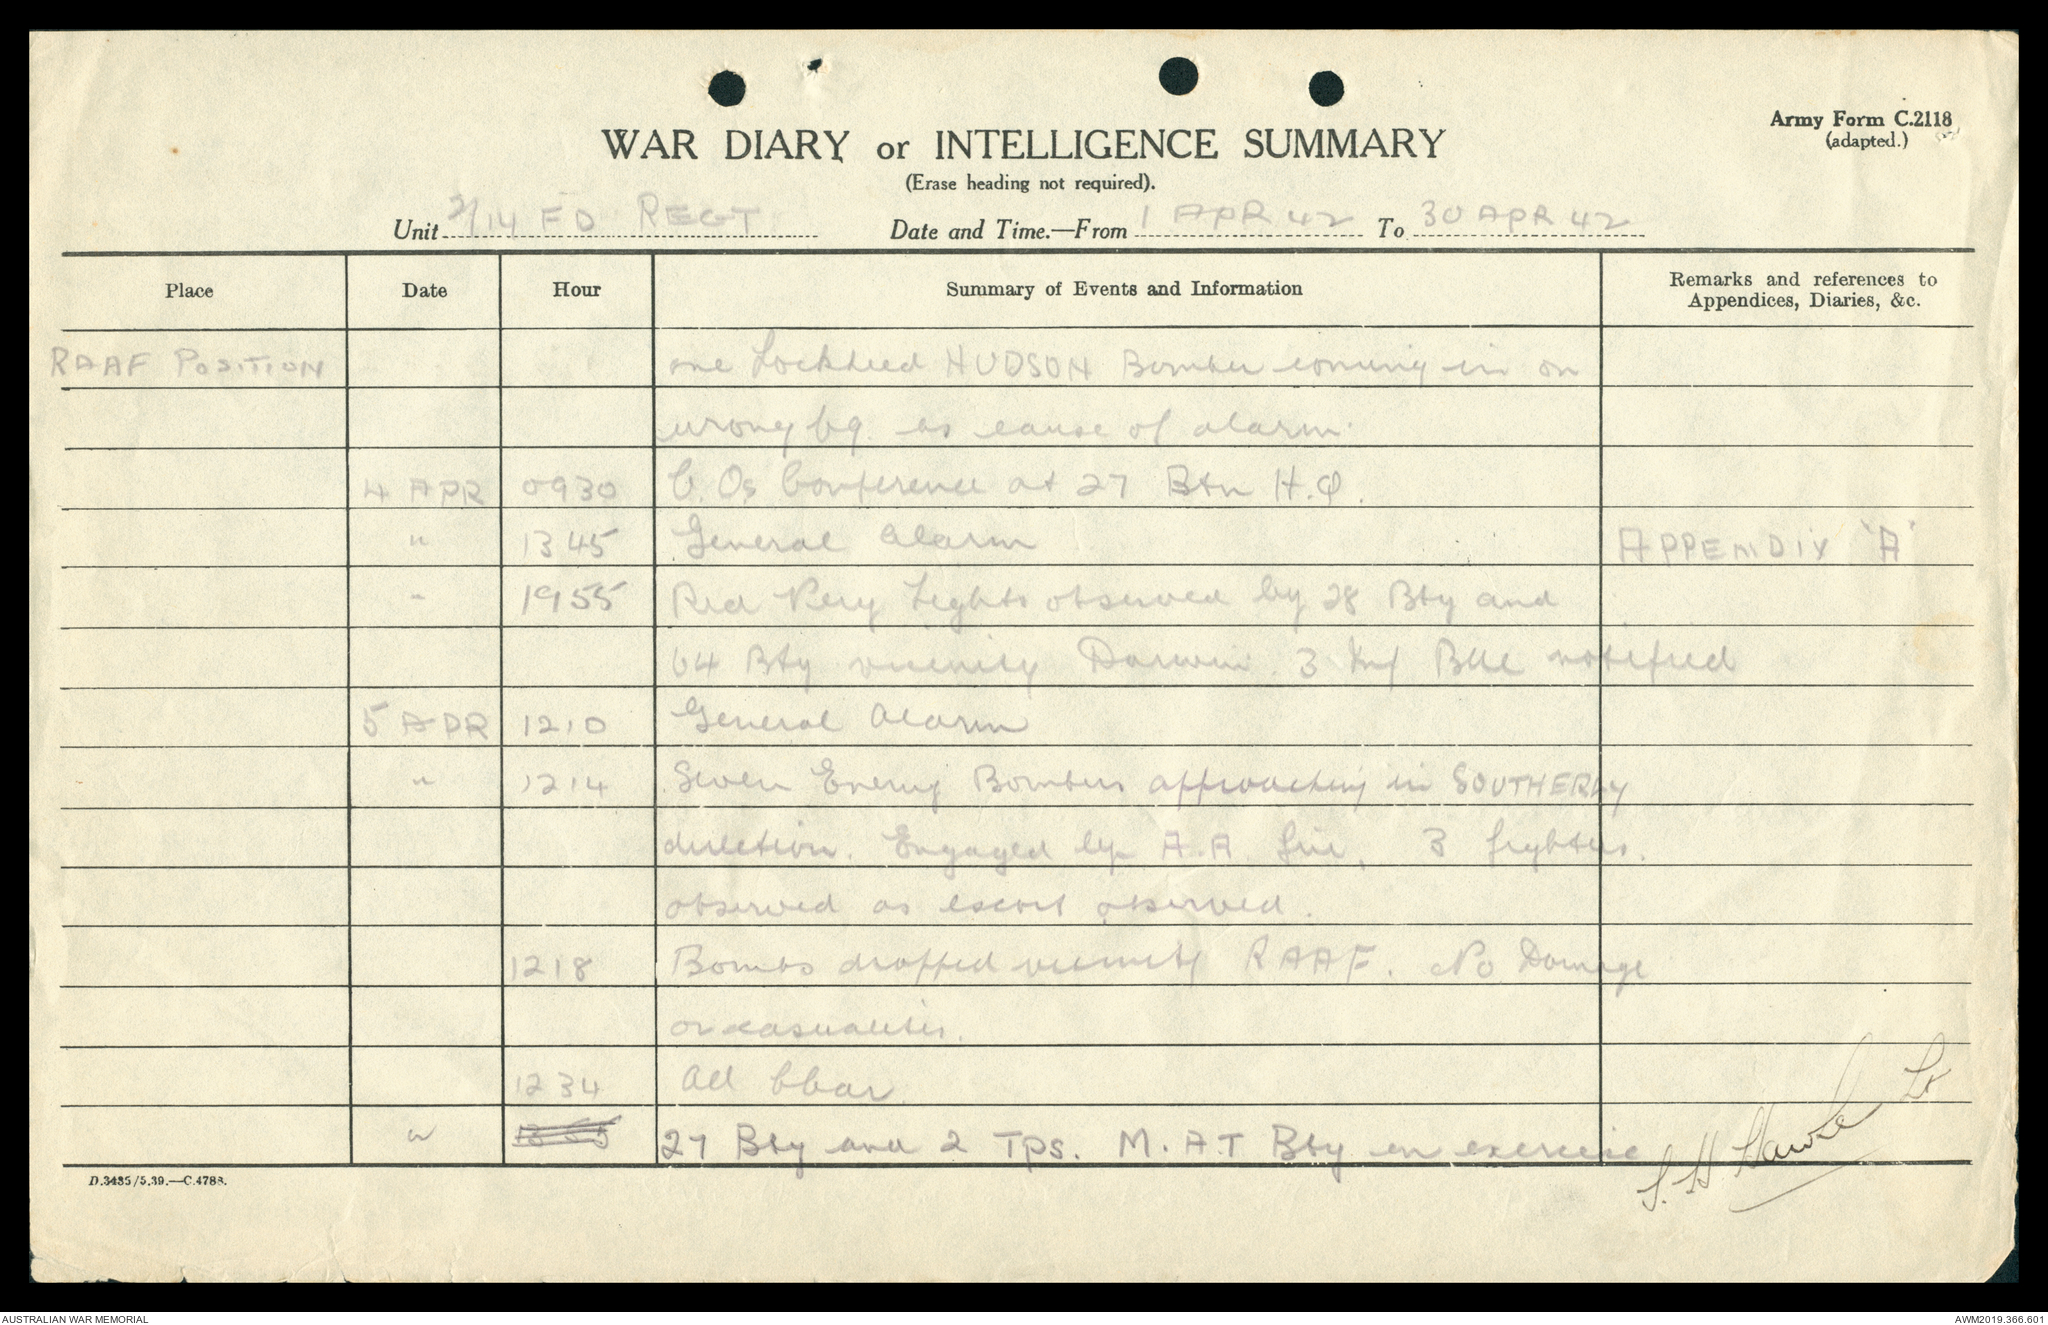 Army Form C.2118
(adapted.)
WAR DIARY or INTELLIGENCE SUMMARY
(Erase heading not required).
Unit 2/14 FD REGT Date and Time.—From 1 APR 42 To 30 APR 42
Place Date Hour Summary of Events and Information Remarks and references to Appendices, Diaries, &c.
RAAF POSITION one Lockheed HUDSON Bomber coming in on
wrong bg. as cause of alarm.
4 APR 0930 C.Os Conference at 27 Btn H.Q.
" 1345 General Alarm APPENDIX 'A'
" 1955 Red Very Lights observed by 28 Bty and
64 Bty vicinity Darwin. 3 Inf Bde notified
5 APR 1210 General Alarm
" 1214 Seven Enemy Bombers approaching in SOUTHERLY
direction. Engaged by A.A fire. 3 fighters.
observed as escort observed.
1218 Bombs dropped vicinity RAAF. No Damage
or casualities.
1234 All Clear
" 27 Bty and 2 Tps. M.A.T Bty on exercise
S. H Hawke Lt
D.3435/5.39.—C.4788.
AUSTRALIAN WAR MEMORIAL AWM2019.366.601